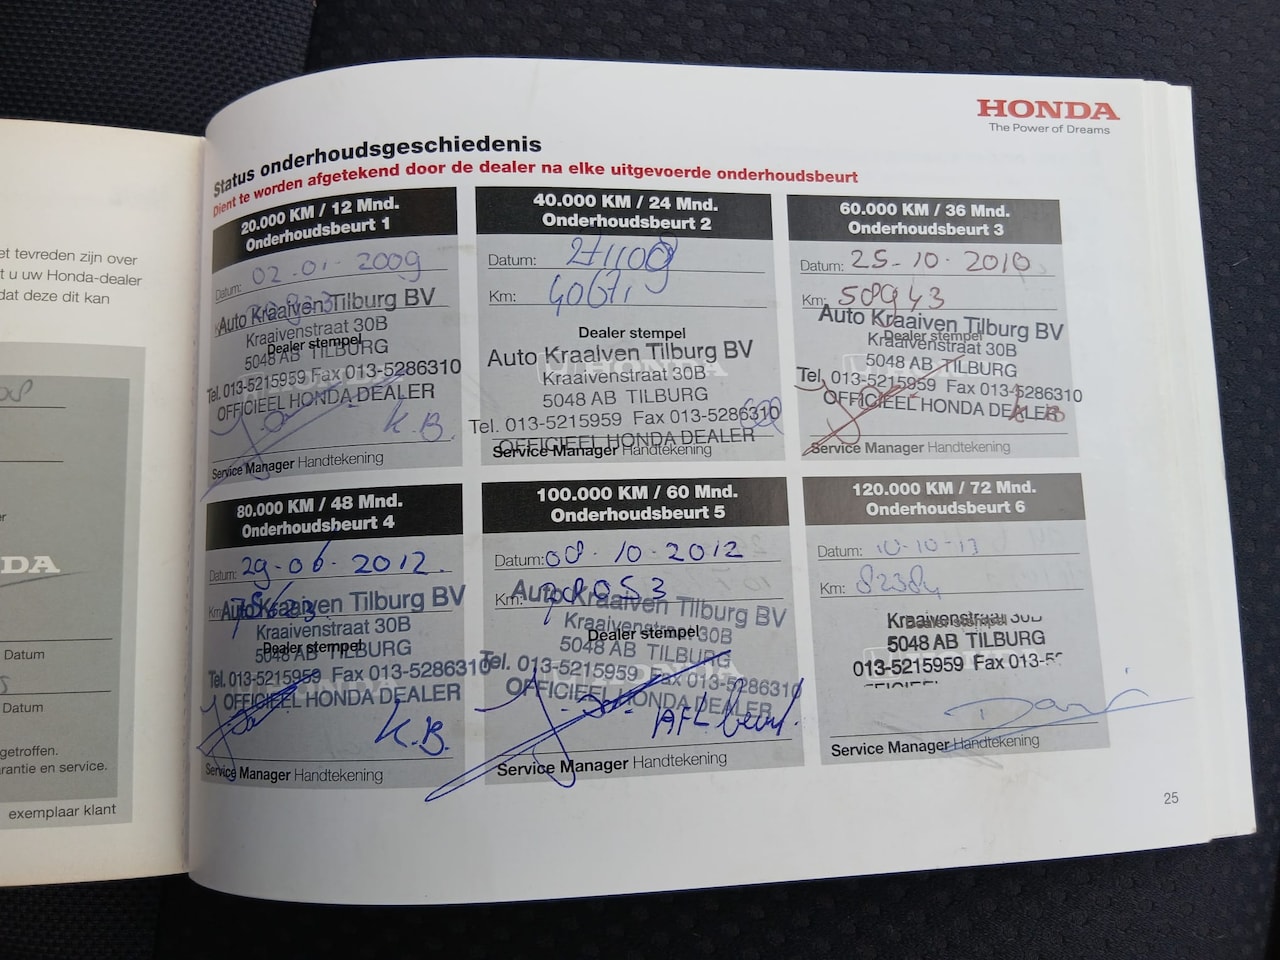 HONDA
The Power of Dreams
Status onderhoudsgeschiedenis
Dient te worden afgetekend door de dealer na elke uitgevoerde onderhoudsbeurt
et tevreden zijn over
t u uw Honda-dealer
dat deze dit kan
DA
Datum
Datum
getroffen.
arantie en service.
exemplaar klant
20.000 KM / 12 Mnd.
Onderhoudsbeurt 1
Datum: 02-01-2009
Auto Kraaiven Tilburg BV
Kraaivenstraat 30B
Dealer stempel
5048 AB TILBURG
Tel. 013-5215959 Fax 013-5286310
OFFICIEEL HONDA DEALER
K.B.
Service Manager Handtekening
40.000 KM / 24 Mnd.
Onderhoudsbeurt 2
Datum: 271109
Km: 40671
Dealer stempel
Auto Kraaiven Tilburg BV
Kraaivenstraat 30B
5048 AB TILBURG
Tel. 013-5215959 Fax 013-5286310
OFFICIEEL HONDA DEALER
Service Manager Handtekening
60.000 KM / 36 Mnd.
Onderhoudsbeurt 3
Datum: 25-10-2010
Km: 58943
Auto Kraaiven Tilburg BV
Dealer stempel
Kraaivenstraat 30B
5048 AB TILBURG
Tel. 013-5215959 Fax 013-5286310
OFFICIEEL HONDA DEALER
K.B
Service Manager Handtekening
80.000 KM / 48 Mnd.
Onderhoudsbeurt 4
Datum: 29-06-2012.
Km:
Auto Kraaiven Tilburg BV
Kraaivenstraat 30B
Dealer stempel
5048 AB TILBURG
Tel. 013-5215959 Fax 013-5286310
OFFICIEEL HONDA DEALER
K.B.
Service Manager Handtekening
100.000 KM / 60 Mnd.
Onderhoudsbeurt 5
Datum: 08-10-2012
Km:
Auto Kraaiven Tilburg BV
Kraaivenstraat 30B
Dealer stempel
5048 AB TILBURG
Tel. 013-5215959 Fax 013-5286310
OFFICIEEL HONDA DEALER
Service Manager Handtekening
120.000 KM / 72 Mnd.
Onderhoudsbeurt 6
Datum: 10-10-13
Km: 82384
Kraaivenstraat 30B
Dealer stempel
5048 AB TILBURG
013-5215959 Fax 013-5
Service Manager Handtekening
25